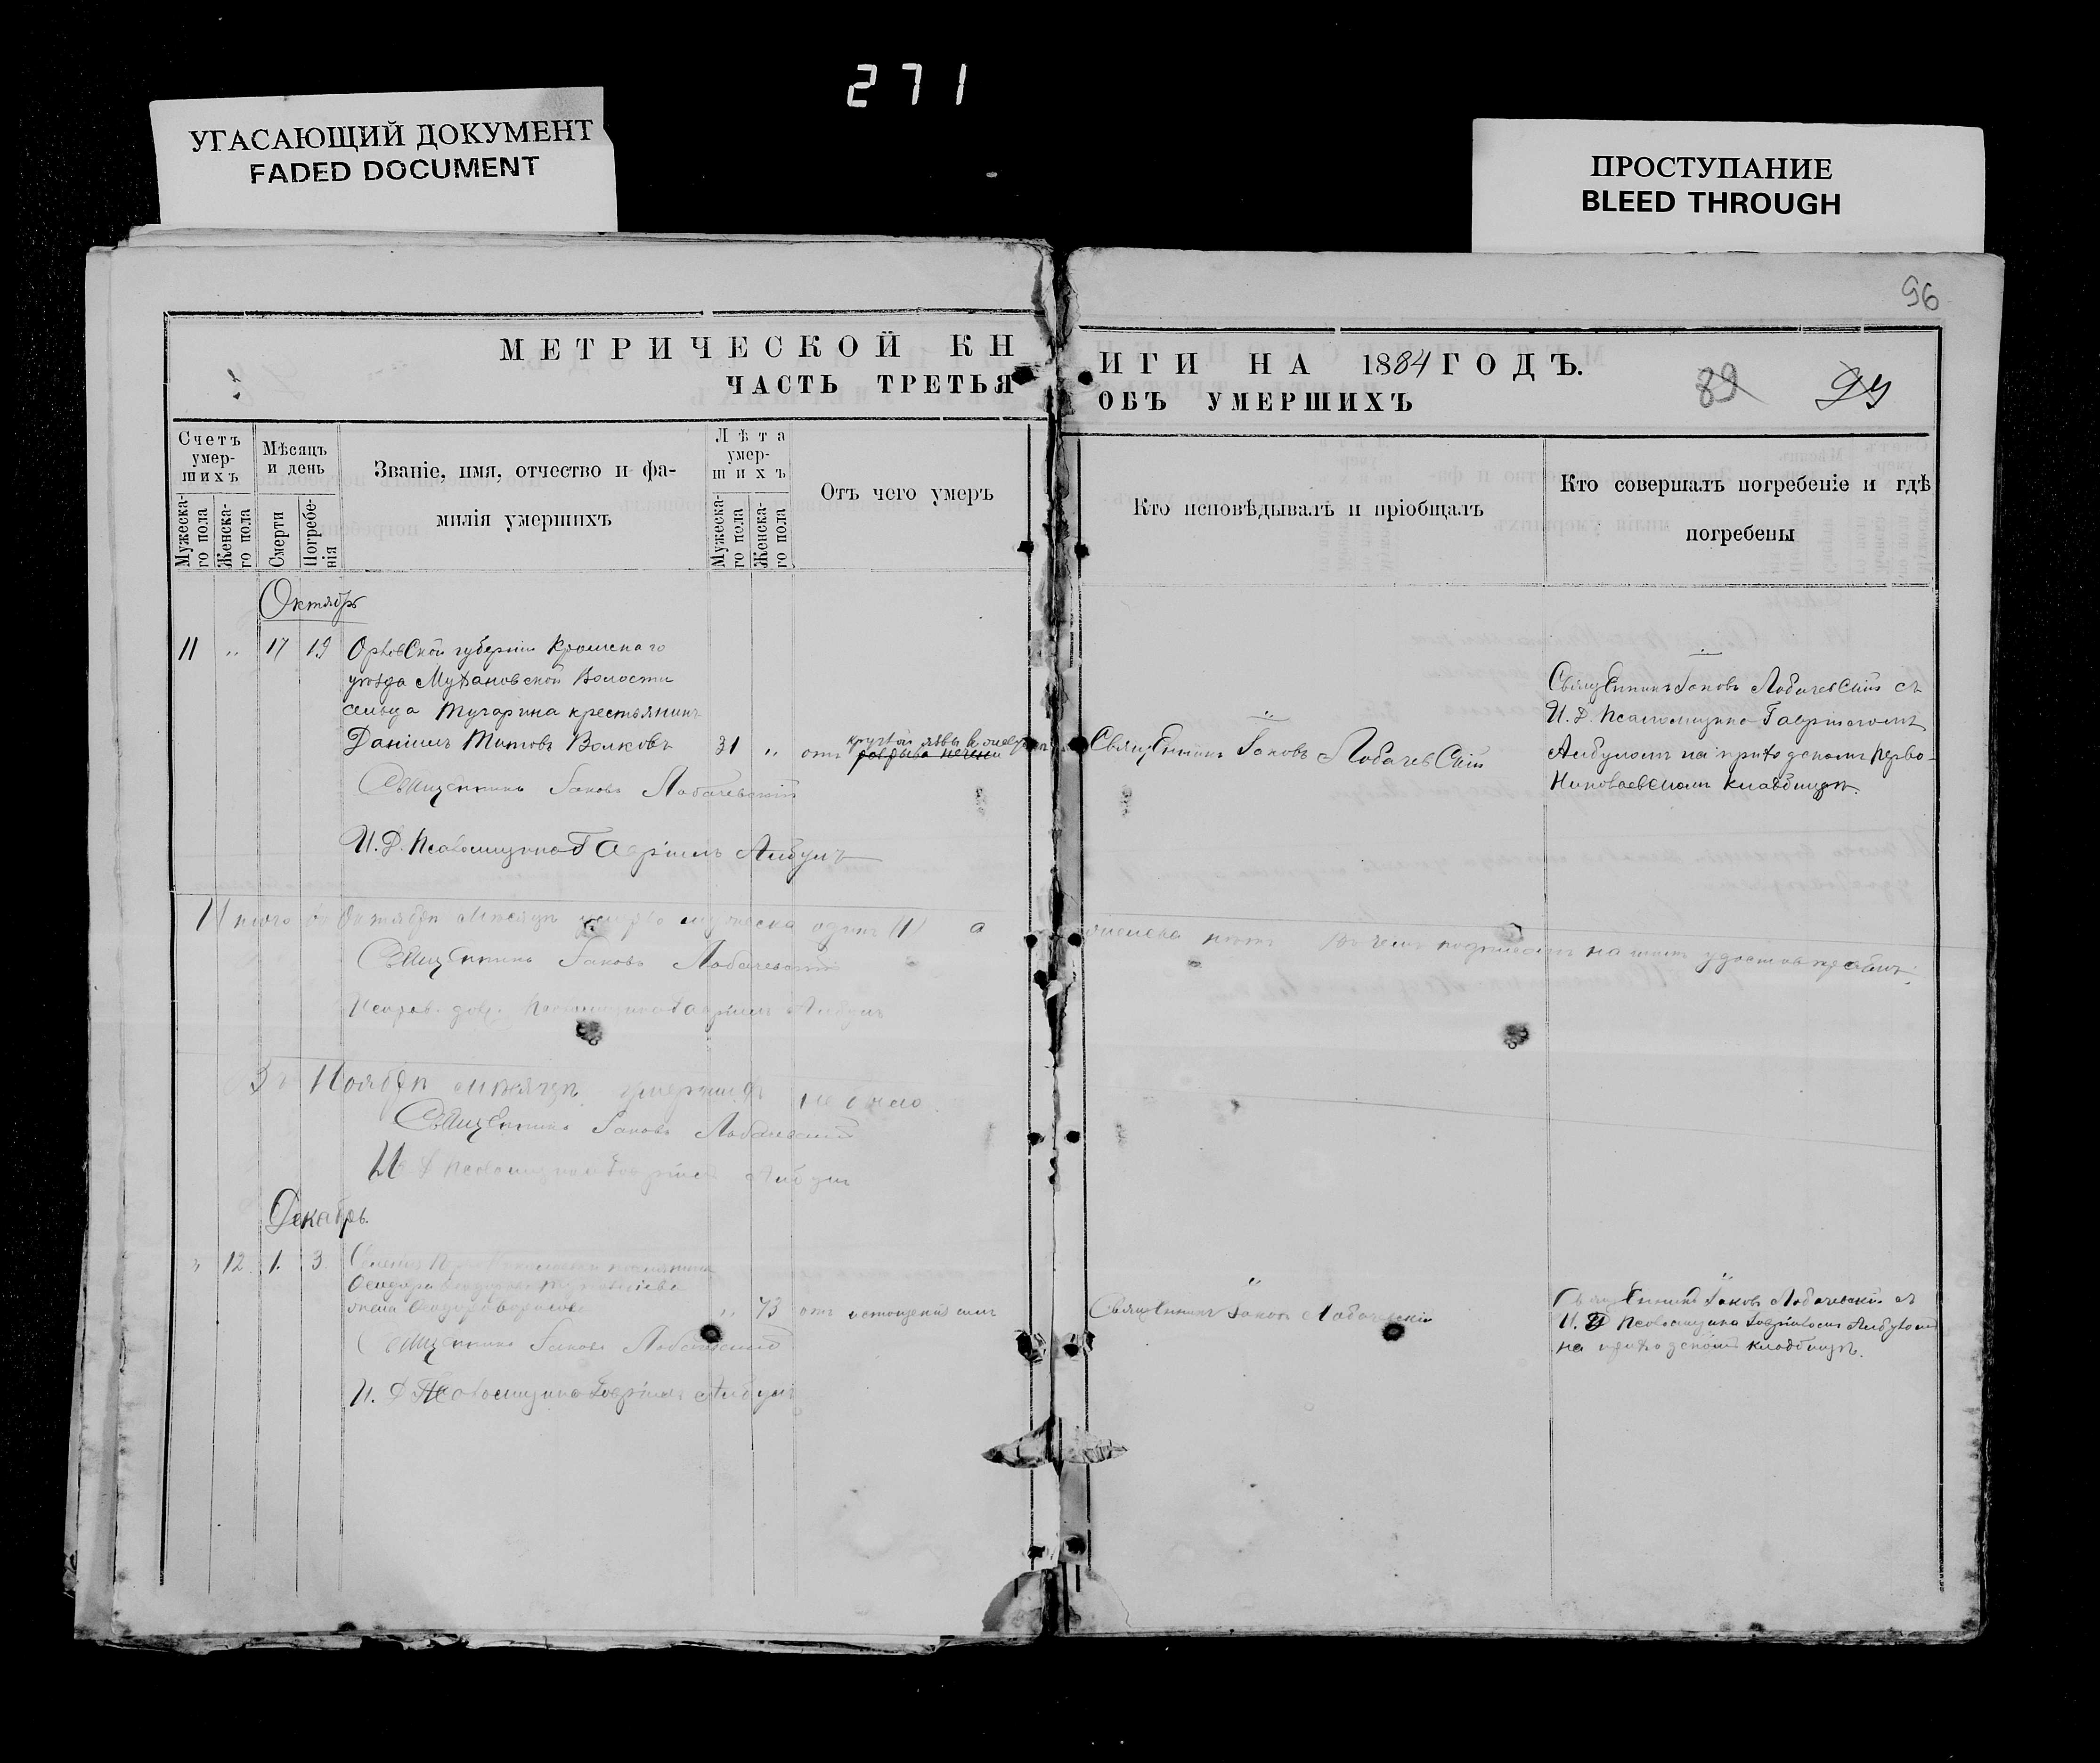 271
УГАСАЮЩИЙ ДОКУМЕНТ
FADED DOCUMENT
ПРОСТУПАНИЕ
BLEED THROUGH
96
МЕТРИЧЕСКОЙ КНИГИ НА 1884 ГОДЪ.
ЧАСТЬ ТРЕТЬЯ ОБЪ УМЕРШИХЪ
89
Счетъ умер-шихъ
Мужеска-го пола
Женска-го пола
Мѣсяцъ и день
Смерти
Погребе-нія
Званіе, имя, отчество и фа-
милія умершихъ
Лѣта умер-шихъ
Мужеска-го пола
Женска-го пола
Отъ чего умеръ
Кто исповѣдывалъ и пріобщалъ
Кто совершалъ погребеніе и гдѣ
погребены
Октябрь
11 " 17 19 Орловской губерніи Кромскаго
уѣзда Волости
сельца крестьянинъ
Даніилъ Титовъ Волковъ 31 " отъ
Священникъ Іаковъ Лобачевскій
И. Д. Псаломщика Гавріилъ
Священникъ Іаковъ Лобачевскій
Священникъ Іаковъ Лобачевскій съ
И. Д. Псаломщика Гавріиломъ
на приходскомъ Перво-
Николаевскомъ кладбищѣ.
Итого въ Октябрѣ мѣсяцѣ умерло мужеска одинъ (1) а женска нѣтъ въ чемъ подписомъ нашимъ удостовѣряемъ.
Священникъ Іаковъ Лобачевскій
Псаломщика Гавріилъ
Въ Ноябрѣ мѣсяцѣ умершихъ не было.
Священникъ Іаковъ Лобачевскій
И. Д. Псаломщика Гавріилъ
Декабрь.
" 12 1. 3.
жена
" 73 отъ истощенія силъ
Священникъ Іаковъ Лобачевскій
И. Д. Псаломщика Гавріилъ
Священникъ Іаковъ Лобачевскій
Священникъ Іаковъ Лобачевскій съ
И. Д. Псаломщика Гавріиломъ
на приходскомъ кладбищѣ.